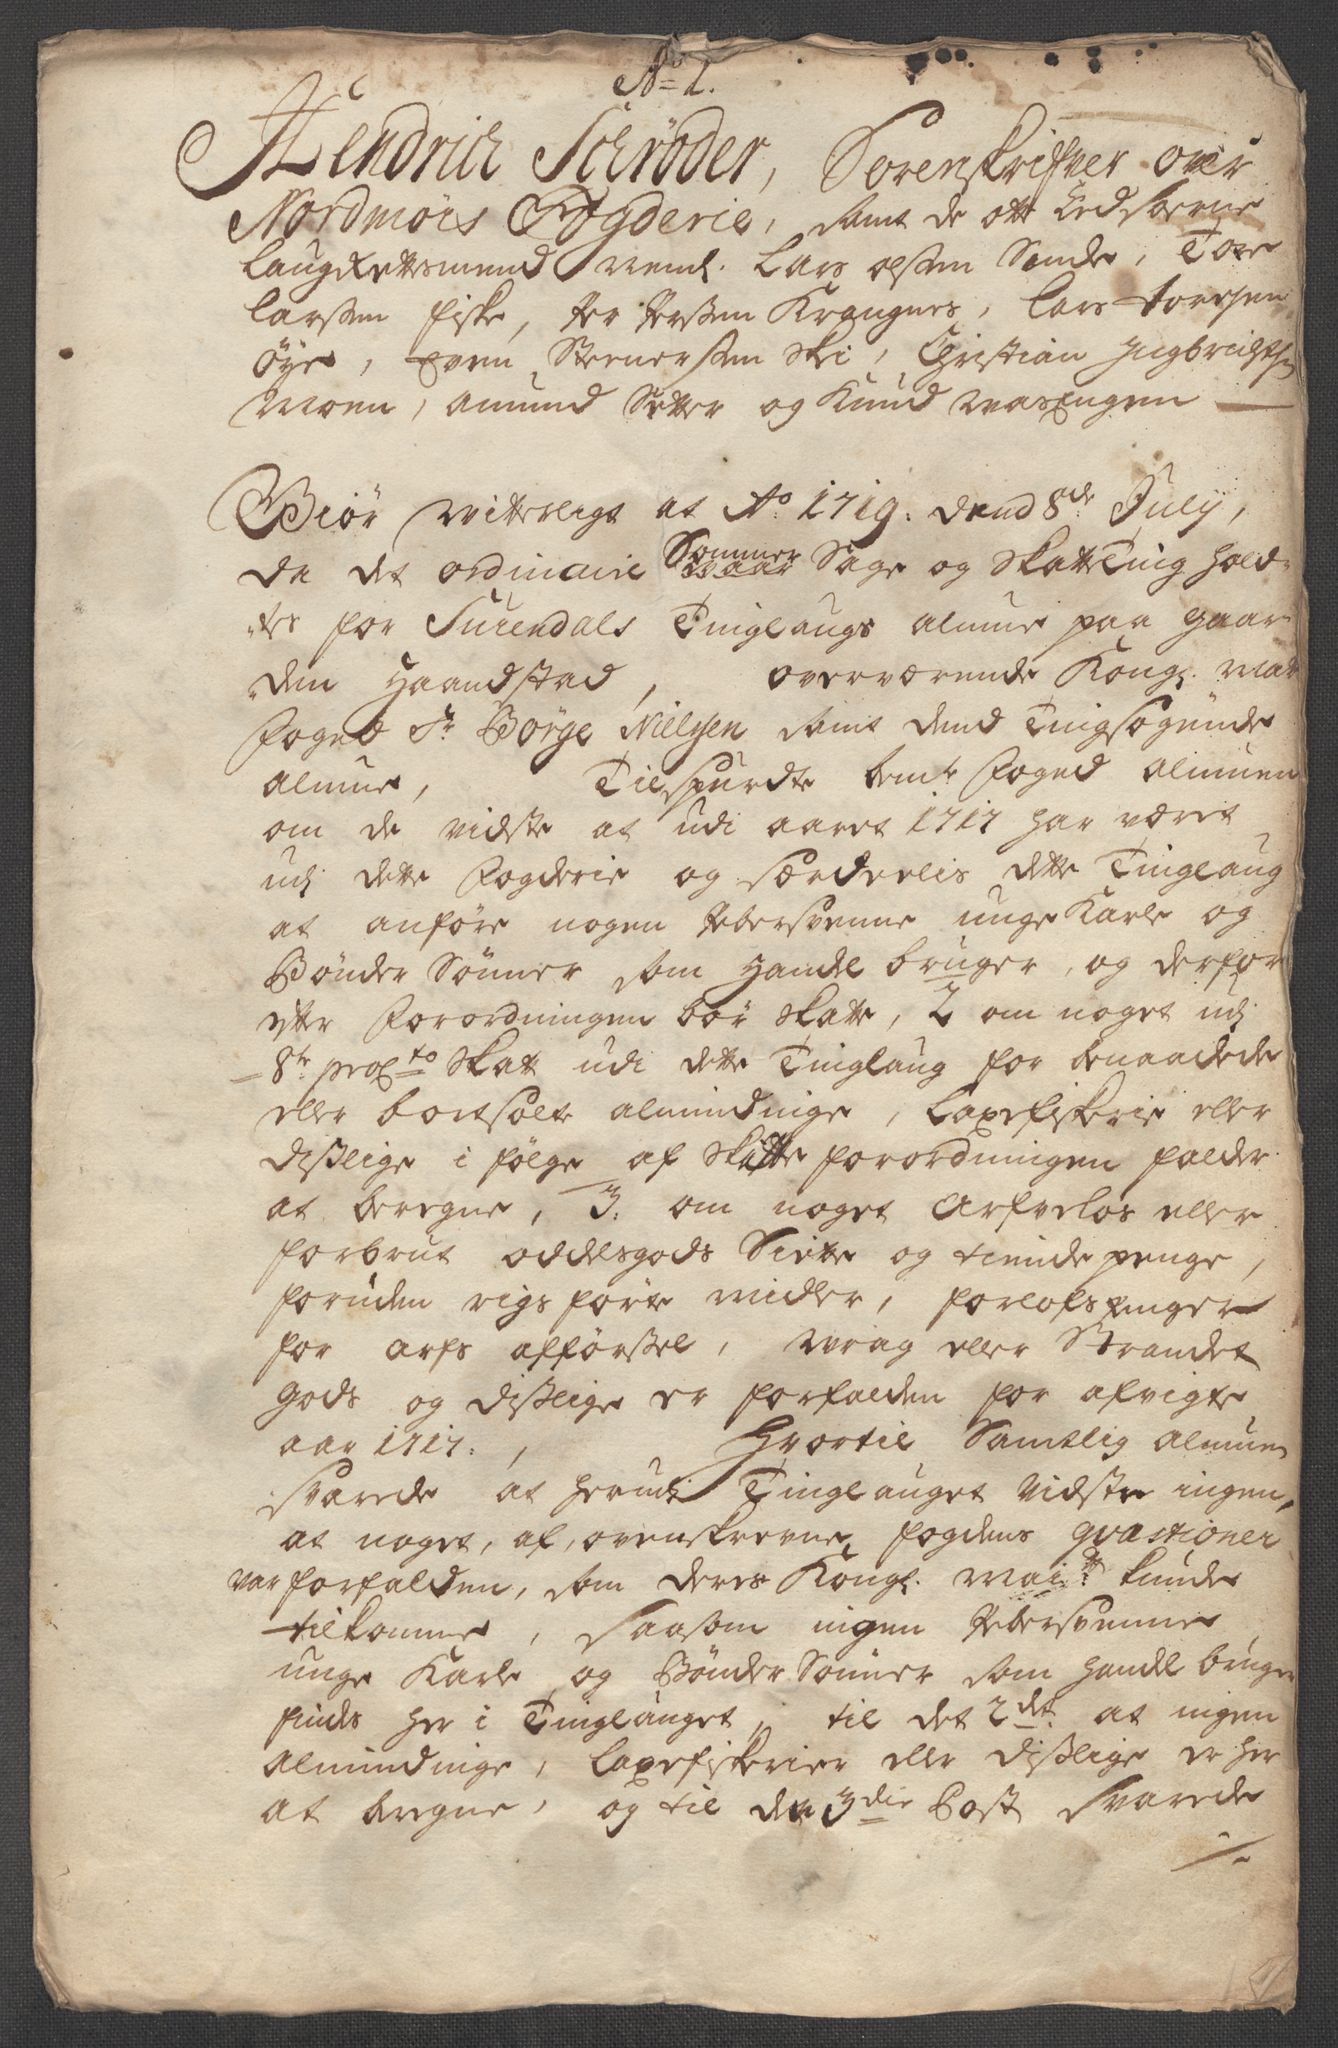 No 1.
Hendrich Schrøder, Sorenskrifver over
Nordmørs Fogderie, samt de otte Eedsvorne
Laugrettsmend Neml. Lars Olssen Sande, Tore
Larssen Fiske, Per Perssen Krangnes, Lars Toresen
Øye, Sven Steenerssen Skei, Christian Ingbrichtsen
Moen, Amund Setter og Knud
Giør Witterligt at Ao 1719. dend 8de July,
da det ordinaire Sommer Sage og Skatte Ting hold-
"tes for Surendals Tinglaugs almue paa gaar-
"den Haandstad, overværende Kongl. May
Foged Sr Børge Nielssen samt dend Tingsøgende
almue, Tilspurdte bemte Foged almuen
om de vidste at udi aaret 1717 har været
udj dette Fogderie og særdeelis dette Tinglaug
at anføre nogen Pebersvenne unge Karle og
Bønder Sønner som Handel bruger, og derfor
efter Forordningen bør skatte, 2 om noget udj
8te prosto Skatt udi dette Tinglaug for benaadede
eller bortsolte almindinge, Laxefiskerie eller
disslige i følge af Skatte forordningen falder
at beregne, 3. om noget Arfveløs eller
forbrut oddelsgods Siette og tiende penge,
foruden rigs førte midler, forlofs penger
for arfs afførssel, Wrag eller Strandet
gods og disslige er forfalden for afvigte
aar 1717., Hvortil Samtlig almuen
svarede at herudj Tinglauget vidste ingen,
at noget, af, ovenskrevne fogdens qvæstioner
var forfalden, som deres Kongl. Mait kunde
tilkomme, saasom ingen Pebersvenne
unge Karle og Bønder Sønner som handel bruger
finds her i Tinglauget, til det 2det at ingen
Almindinge, Laxefiskerier eller disslige er her
at beregne, og til den 3die Post svarede